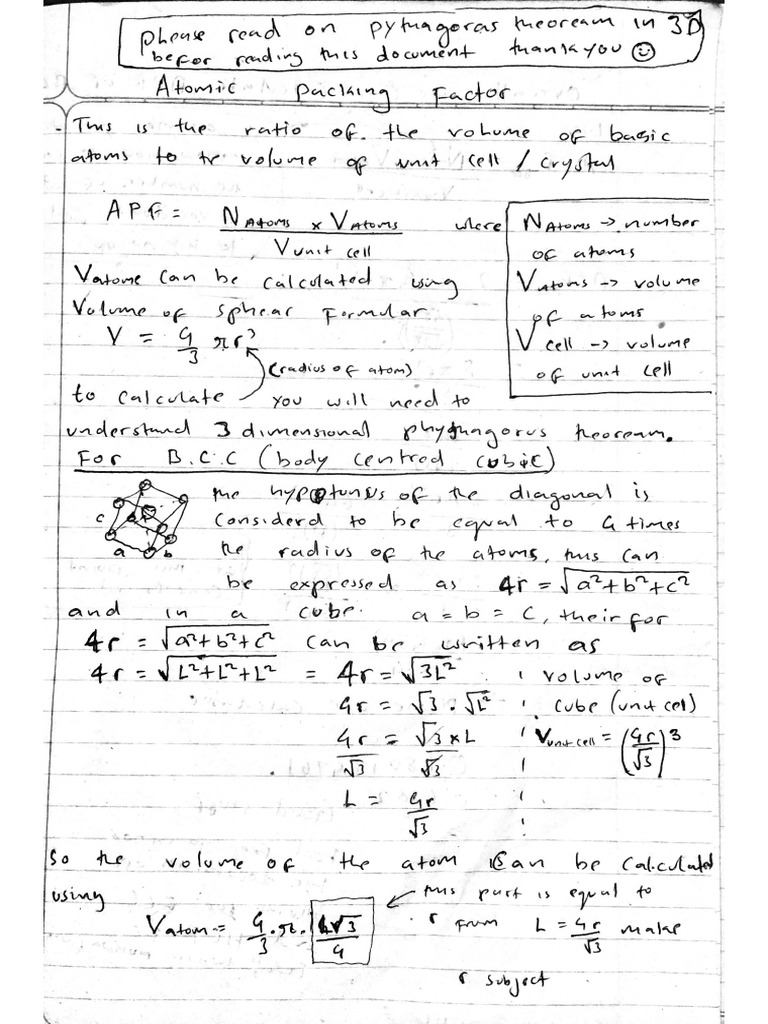 please read on pythagoras theoream in 3D
befor reading this document thank you ☺
Atomic packing Factor
- This is the ratio of the volume of basic
atoms to te volume of unit cell / crystal
APF = N Atoms × V Atoms / V unit cell where
N Atoms → number
of atoms
V Atoms → volume
of atoms
V cell → volume
of unit cell
V atome can be calculated using
Volume of sphear Formular
V = 4/3 πr³
(radius of atom)
to calculate you will need to
understand 3 dimensional phythagorus theoream.
For B.C.C (body centred cubic)
c a b
the hypotunus of the diagonal is
considerd to be equal to 4 times
the radius of the atoms, this can
be expressed as 4r = √a²+b²+c²
and in a cube a = b = c, their for
4r = √a²+b²+c² can be written as
4r = √L²+L²+L² = 4r = √3L²
4r = √3 . √L²
4r/√3 = √3×L/√3
L = 4r/√3
volume of
cube (unit cel)
V unit cell = (4r/√3)³
So the volume of the atom can be calculated
using
V atom = 4/3 . π . L√3/4
this part is equal to
r from L = 4r/√3 make
r subject